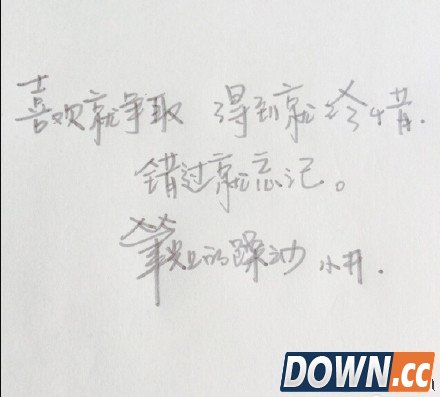 喜欢就争取 得到就珍惜.
错过就忘记。
筆尖上的躁动 小开.
DOWN.cc